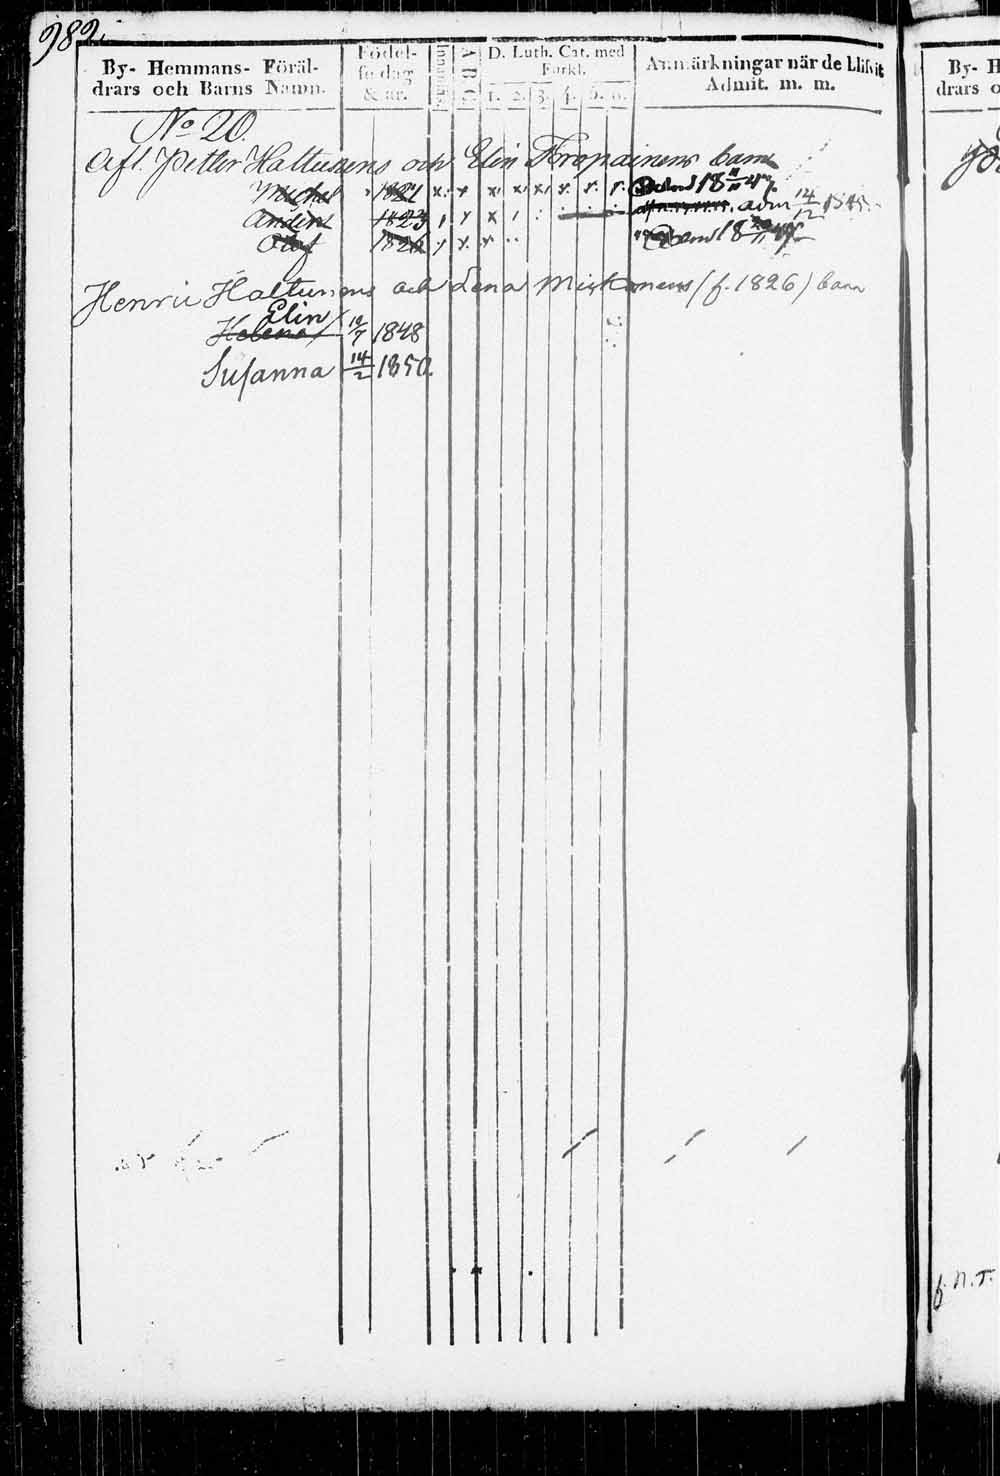 982.
By- Hemmans- Föräl-
drars och Barns Namn.
Födel-
sedag
& år.
Innanläs.
A B C.
D. Luth. Cat. med
Förkl.
1. 2. 3. 4. 5. 6.
Anmärkningar när de blifvit
Admit. m. m.
No 20.
Afl. Petter Hattunens och Elin Kropainens barn
Michel 1821
Anders 1823 adm 14/12 1845
Olof 1826
Henric Hattunens och Lena Miskonens (f. 1826) barn
Elin
Helena 10/7 1848
Susanna 14/2 1850.
By- H
drars o
f. N.T.